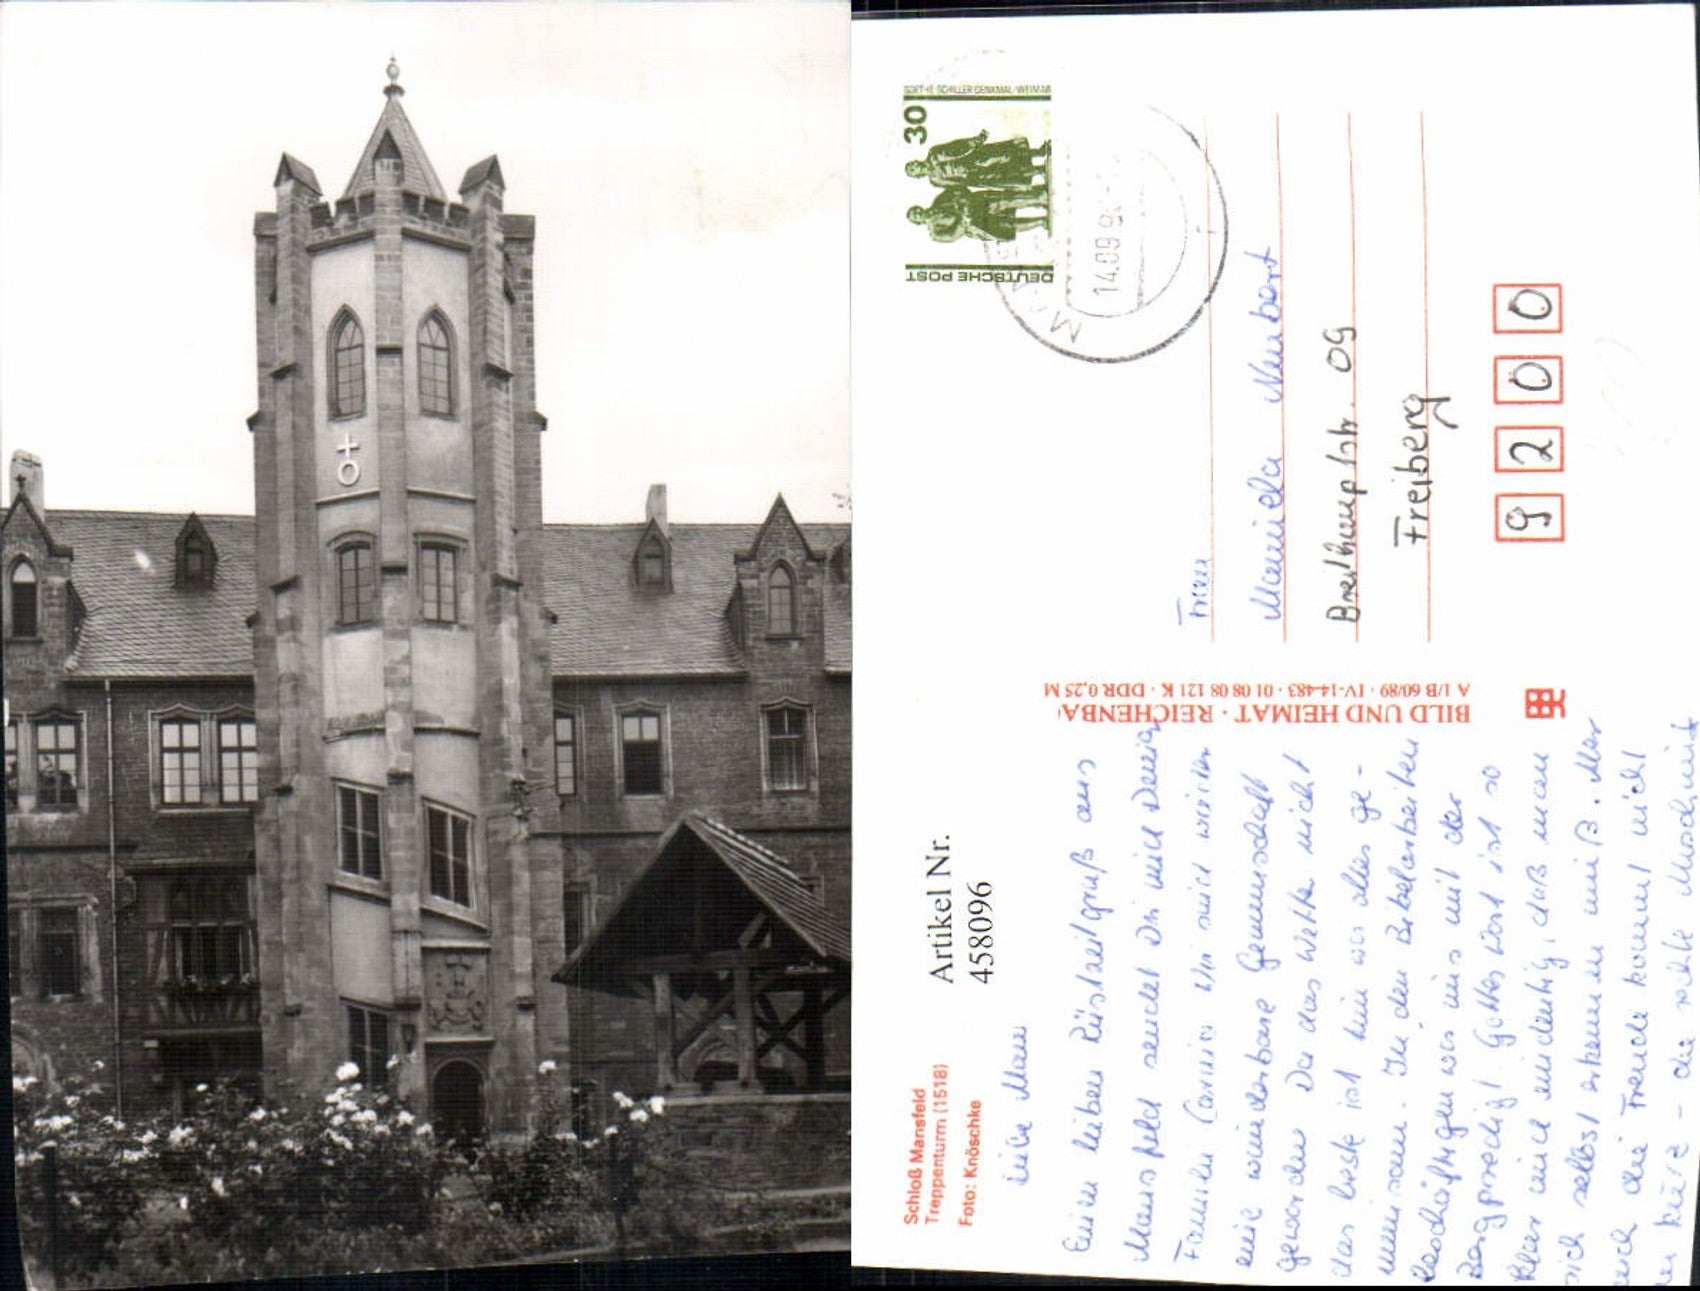 GOETHE SCHILLER DENKMAL/WEIMAR
30
DEUTSCHE POST
14.09.9
Frau
Manuela Neubert
Breithauptstr. 09
Freiberg
9 2 0 0
BILD UND HEIMAT · REICHENBA
A 1/B 60/89 · IV-14-483 · 01 08 08 121 K · DDR 0,25 M
Artikel Nr.
458096
Schloß Mansfeld
Treppenturm (1518)
Foto: Knöschke
Liebe Manu
Einen lieben Rüstzeitgruß aus
Mansfeld sendet Dir
Familie Wir sind wieder
eine wunderbare Gemeinschaft
geworden. Da das Wetter nicht
das beste ist tun wir alles ge-
meinsam. In den Bibelarbeiten
beschäftigen wir uns mit der
Bergpredigt. Gottes Wort ist so
klar und eindeutig, daß man
sich selbst erkennen muß. Aber
auch die Freude kommt nicht
zu kurz - die rechte